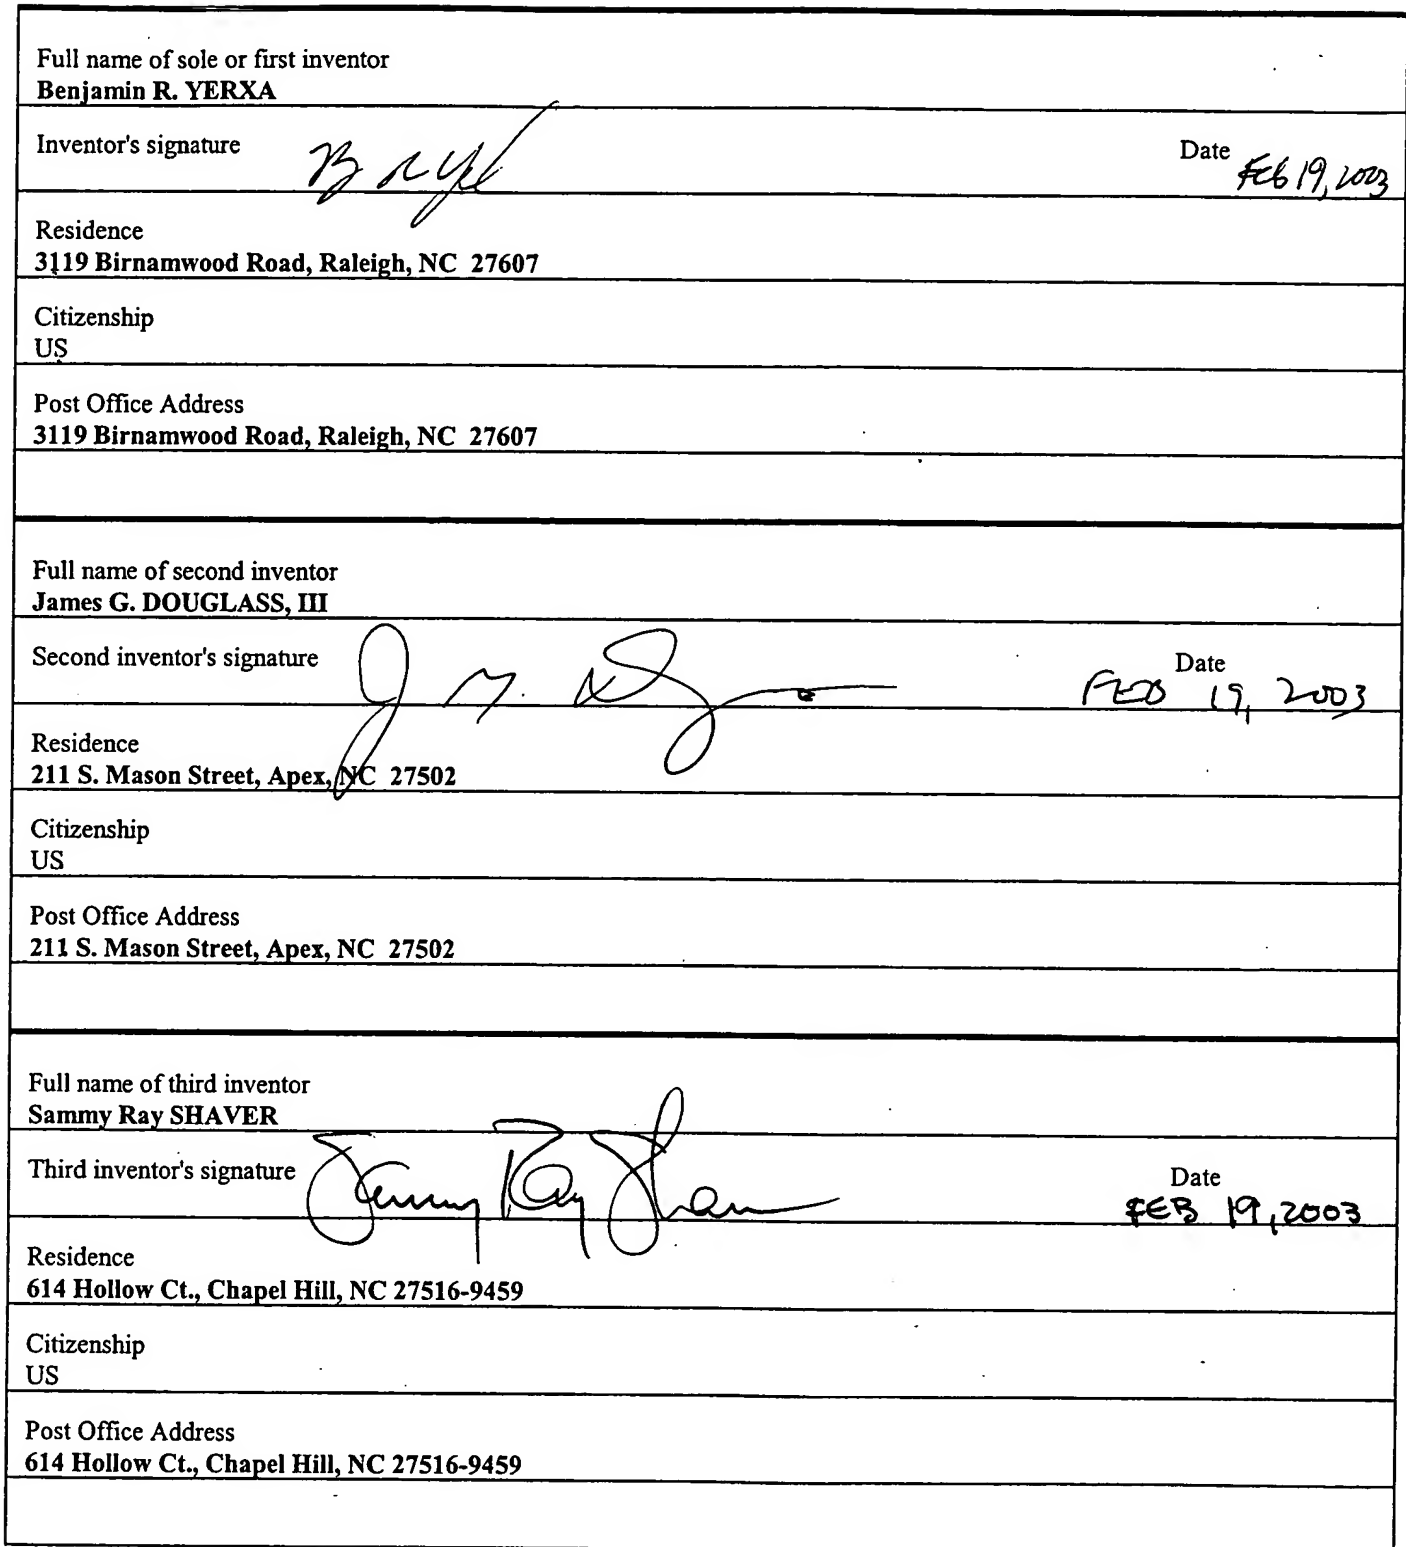 Full name of sole or first inventor
Benjamin R. YERXA
Inventor's signature
Date
FEB 19, 2003
Residence
3119 Birnamwood Road, Raleigh, NC 27607
Citizenship
US
Post Office Address
3119 Birnamwood Road, Raleigh, NC 27607
Full name of second inventor
James G. DOUGLASS, III
Second inventor's signature
Date
FEB 19, 2003
Residence
211 S. Mason Street, Apex, NC 27502
Citizenship
US
Post Office Address
211 S. Mason Street, Apex, NC 27502
Full name of third inventor
Sammy Ray SHAVER
Third inventor's signature Sammy Ray Shaver
Date
FEB 19, 2003
Residence
614 Hollow Ct., Chapel Hill, NC 27516-9459
Citizenship
US
Post Office Address
614 Hollow Ct., Chapel Hill, NC 27516-9459